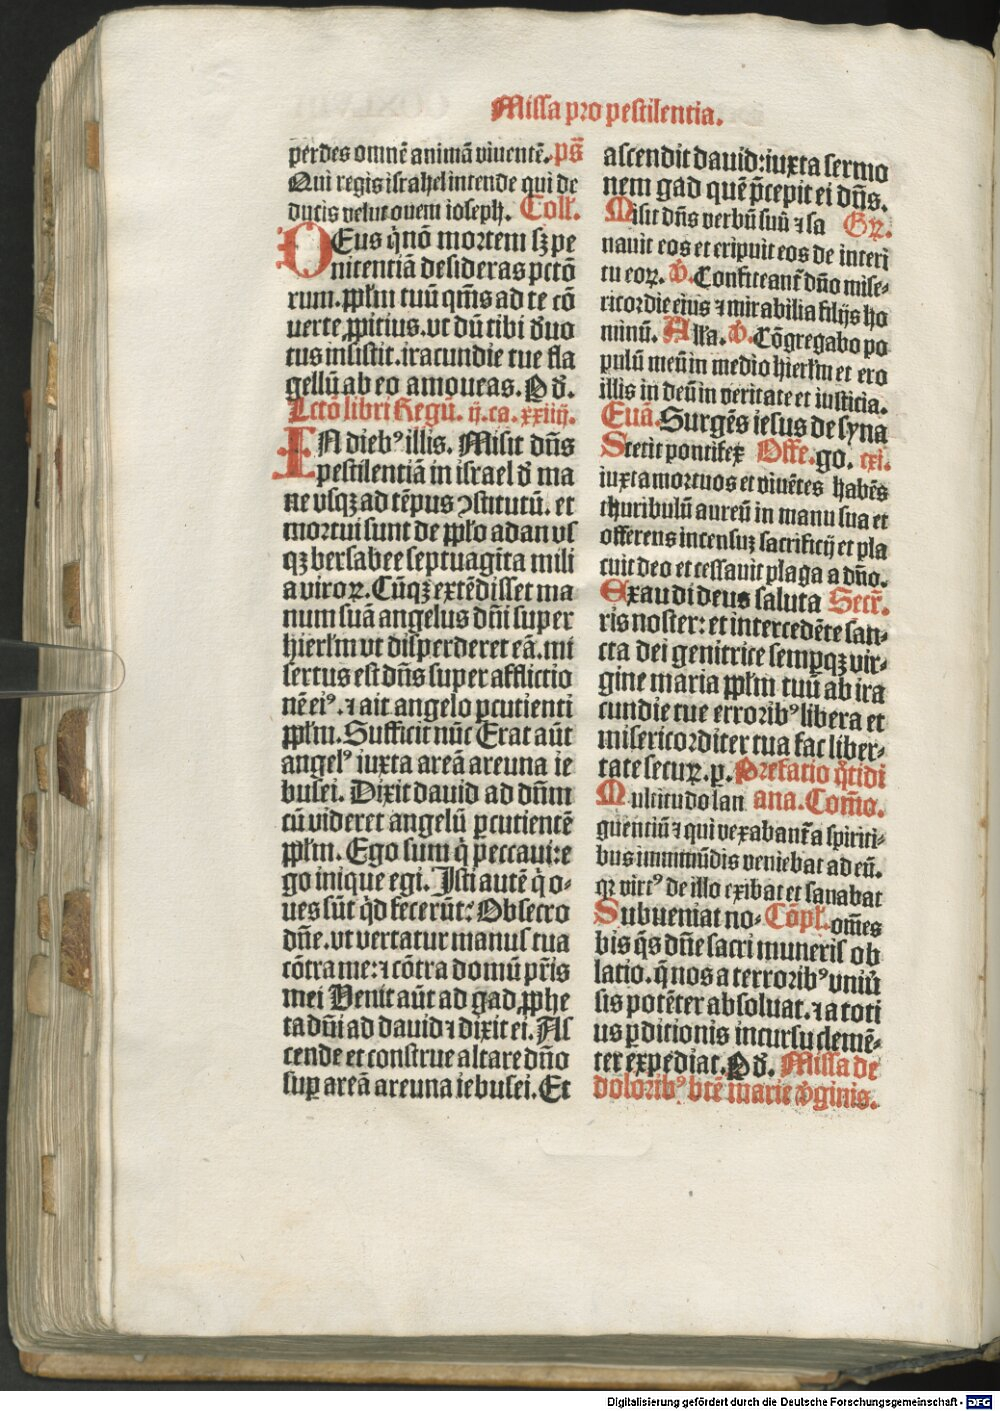 Missa pro pestilentia.
perdes omnē animā viuentē. ps̄
Qui regis israhel intende qui de
ducis velut ouem ioseph. Coll̄.
DEus q̄ nō mortem sꝫ pe
nitentiā desideras pctō
rum. pp̄lm tuū qm̄s ad te cō
uerte ꝓpitius. vt dū tibi d̓uo
tus insistit. iracundie tue fla
gellū ab eo amoueas. Q d̓.
Lctō libri Regū. ij. ca. xxiiij.
IN diebꝰ illis. Misit dn̄s
pestilentiā in israel d̓ ma
ne vsqꝫ ad tēpus ꝯstitutū. et
mortui sunt de pp̄lo a dan vs
qꝫ bersabee septuagīta mili
a viroꝝ. Cūqꝫ extēdisset ma
num suā angelus dn̄i super
hierl̄m vt disperderet eā. mi
sertus est dn̄s super afflictio
nē eiꝰ. ⁊ ait angelo ꝑcutienti
pp̄lm. Sufficit nūc Erat aūt
angelꝰ iuxta areā areuna ie
busei. Dixit dauid ad dn̄m
cū videret angelū ꝑcutientē
pp̄lm. Ego sum q̄ peccaui: e
go inique egi. Isti autē q̄ o-
ues sūt q̄d fecerūt: Obsecro
dn̄e. vt vertatur manus tua
cōtra me: ⁊ cōtra domū pr̄is
mei Venit aūt ad gad ꝓphe
ta dn̄i ad dauid ⁊ dixit ei. As
cende et construe altare dn̄o
sup areā areuna iebusei. Et
ascendit dauid: iuxta sermo
nem gad quē p̄cepit ei dn̄s.
Misit dn̄s verbū suū ⁊ sa Gꝝ.
nauit eos et eripuit eos de interi
tu eoꝝ. v̓. Confiteant̄ dn̄o mise-
ricordie eius ⁊ mirabilia filijs ho
minū. All̄a. v̓. Cōgregabo po
pulū meū in medio hierl̄m et ero
illis in deū in veritate et iusticia.
Euā. Surgēs iesus de syna
Stetit pontifex Offe. go. cxi.
iuxta mortuos et viuētes habēs
thuribulū aureū in manu sua et
offerens intensuꝫ sacrificij et pla
cuit deo et cessauit plaga a dn̄o.
Exaudi deus saluta Secr̄.
ris noster: et intercedēte san-
cta dei genitrice semꝑqꝫ vir-
gine maria pp̄lm tuū ab ira
cundie tue erroribꝰ libera et
misericorditer tua fac liber-
tate secuꝝ. ꝑ. Prefatio q̄tidi
Multitudo lan ana. Com̄o.
guentiū ⁊ qui vexabant̄ a spiriti-
bus immūdis veniebat ad eū.
qꝛ virtꝰ de illo exibat et sanabat
Subueniat no- Cōpl̄. om̄es
bis q̄s dn̄e sacri muneris ob
latio. q̄ nos a terroribꝰ vniū̓
sis potēter absoluat. ⁊ a toti
us ꝑditionis incursu clemē-
ter expediat. Q d̓. Missa de
doloribꝰ btē marie v̓ginis.
Digitalisierung gefördert durch die Deutsche Forschungsgemeinschaft - DFG